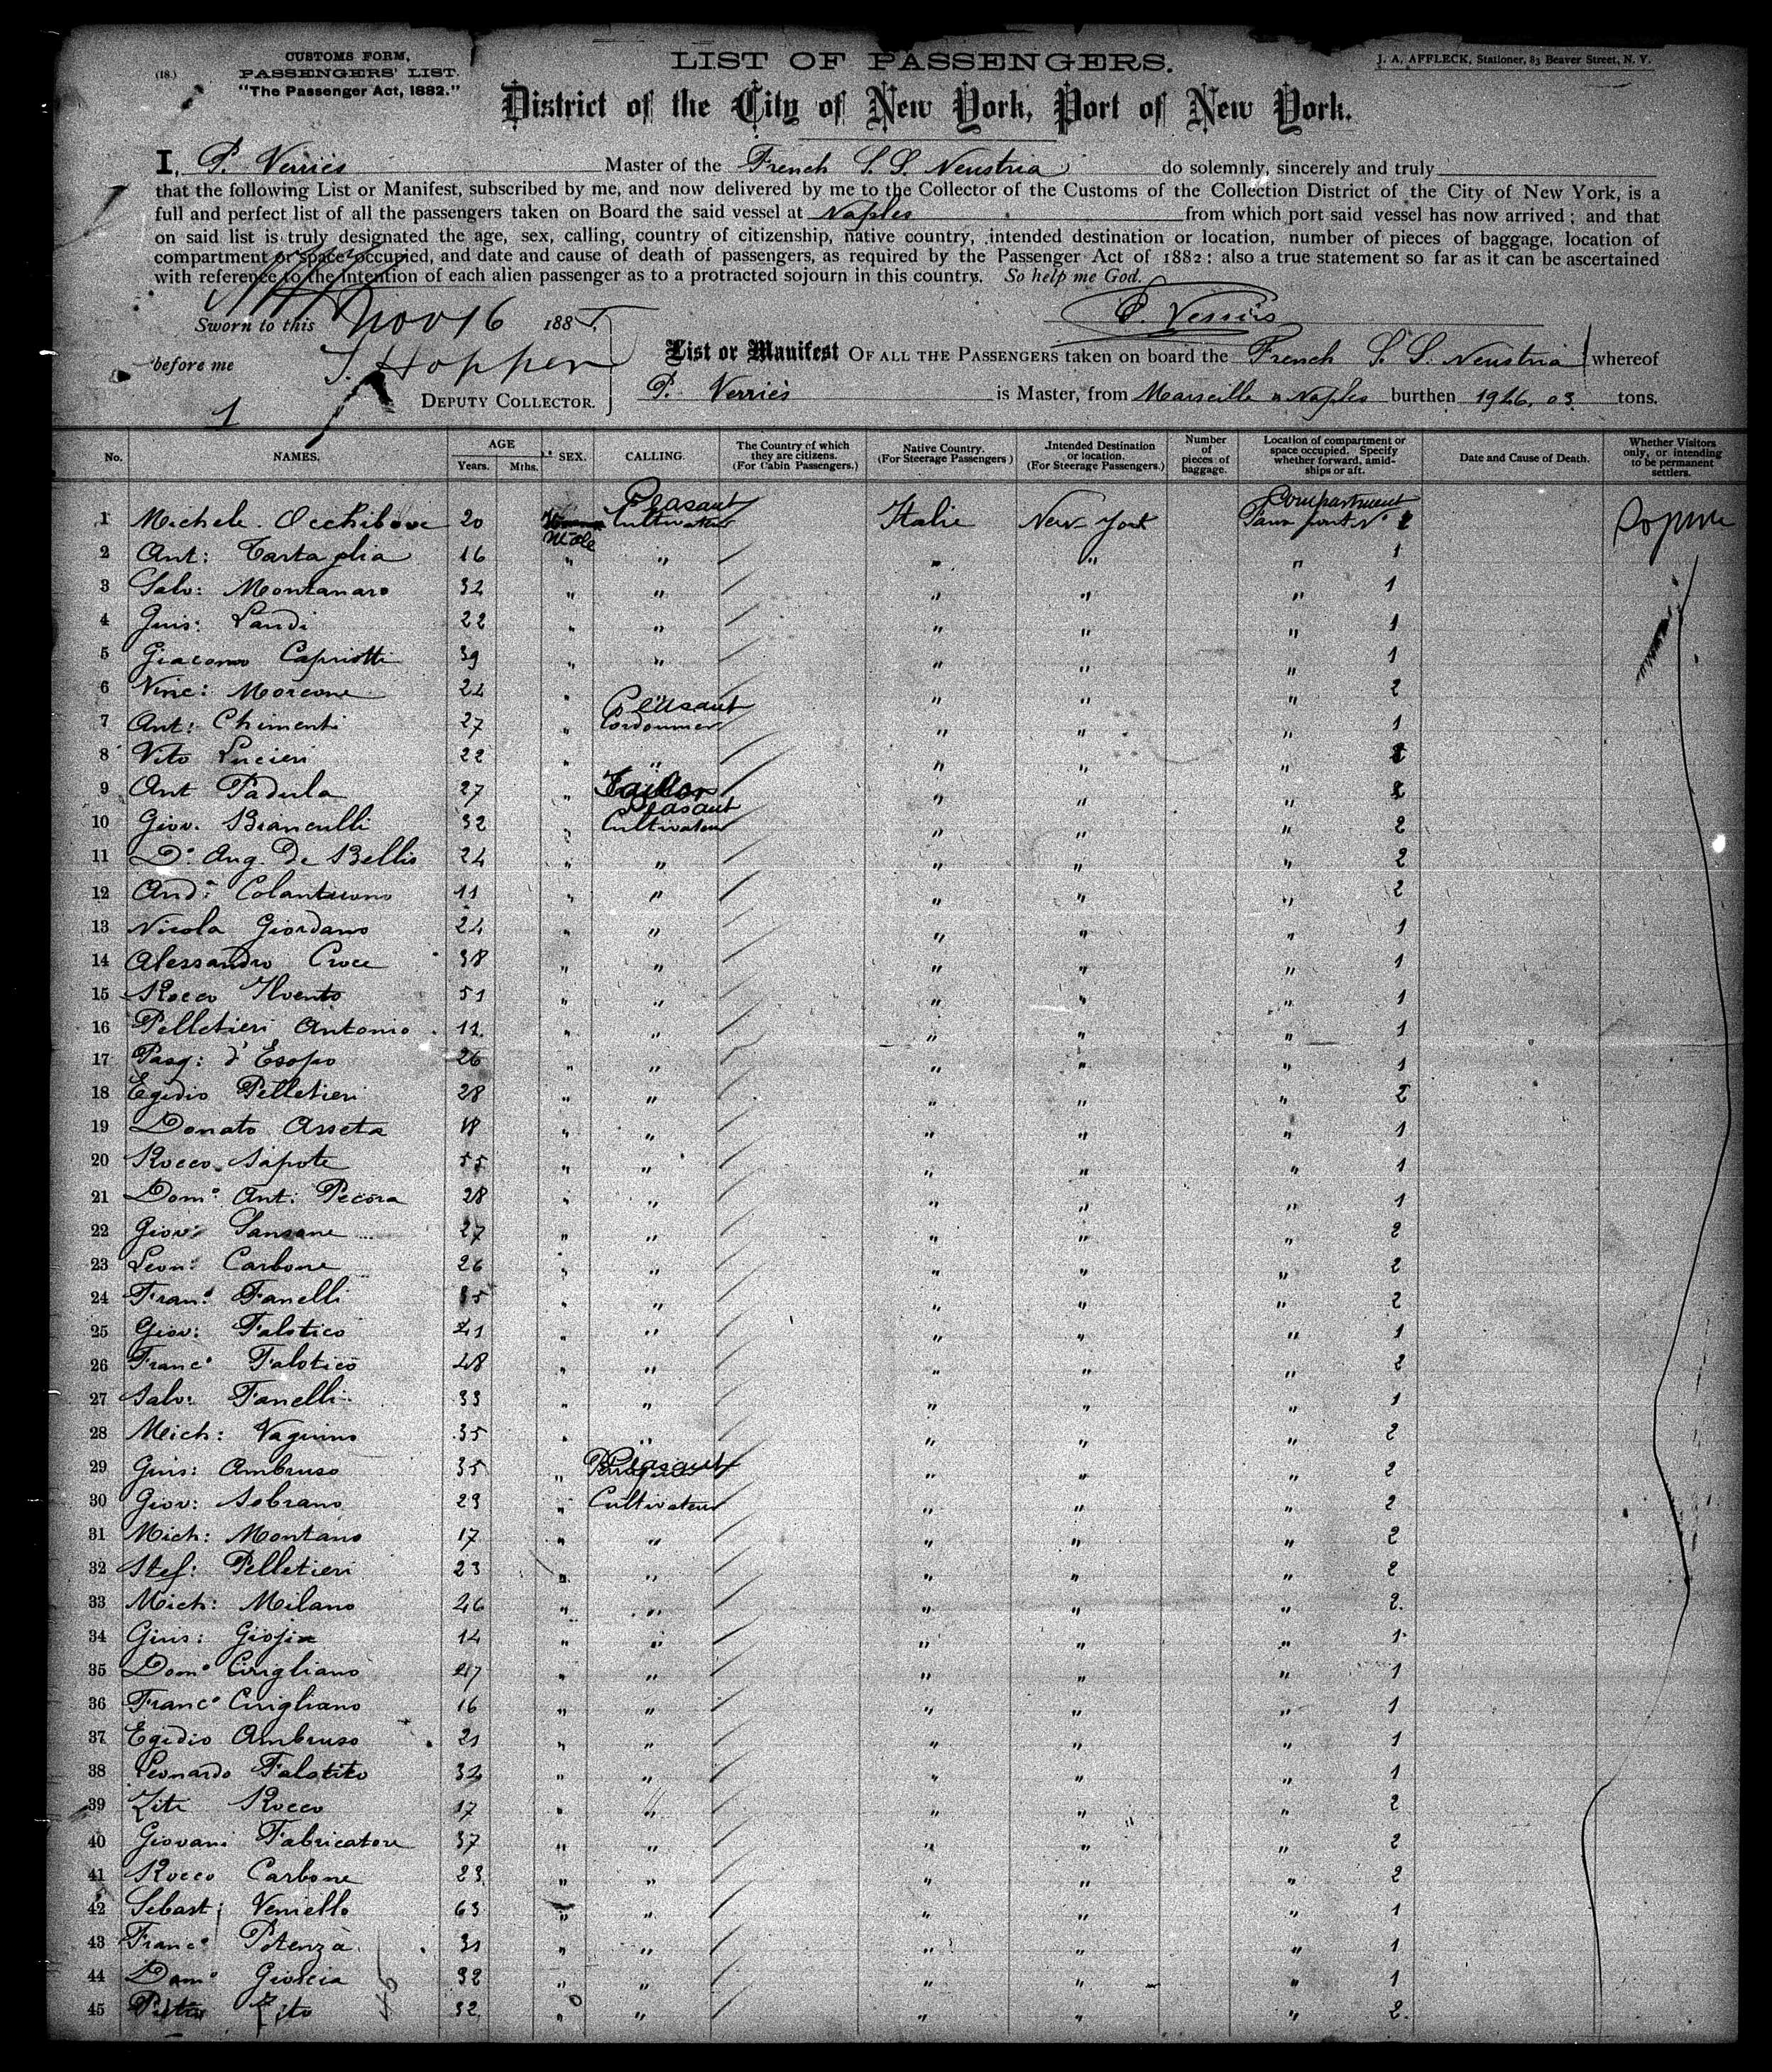 (18.)
CUSTOMS FORM,
PASSENGERS' LIST.
"The Passenger Act, 1882."
LIST OF PASSENGERS.
J. A. AFFLECK, Stationer, 83 Beaver Street, N. Y.
District of the City of New York, Port of New York.
I, P. Verriès Master of the French S. S. Neustria do solemnly, sincerely and truly
that the following List or Manifest, subscribed by me, and now delivered by me to the Collector of the Customs of the Collection District of the City of New York, is a
full and perfect list of all the passengers taken on Board the said vessel at Naples from which port said vessel has now arrived; and that
on said list is truly designated the age, sex, calling, country of citizenship, native country, intended destination or location, number of pieces of baggage, location of
compartment or space occupied, and date and cause of death of passengers, as required by the Passenger Act of 1882: also a true statement so far as it can be ascertained
with reference to the intention of each alien passenger as to a protracted sojourn in this country. So help me God.
P. Verriès
Sworn to this Nov 16 188
before me J. Hopper
DEPUTY COLLECTOR.
1
List or Manifest OF ALL THE PASSENGERS taken on board the French S. S. Neustria whereof
P. Verriès is Master, from Marseille & Naples burthen 1926,03 tons.
No. NAMES. AGE Years. Mths. SEX. CALLING. The Country of which they are citizens. (For Cabin Passengers.) Native Country. (For Steerage Passengers) Intended Destination or location. (For Steerage Passengers.) Number of pieces of baggage. Location of compartment or space occupied. Specify whether forward, amidships or aft. Date and Cause of Death. Whether Visitors only, or intending to be permanent settlers.
Peasant Compartment
1 Michele Occhibove 20 Male Cultivateur Italie New York Faux pont No 2
2 Ant: Tartaglia 16 " " " " " 1
3 Salv: Montanaro 32 " " " " " 1
4 Guis: Landi 22 " " " " " 1
5 Giacomo Capriotti 39 " " " " " 1
6 Vinc: Morcone 22 " " " " " 2
Peasant
7 Ant: Chimenti 27 " Cordonnier " " " 1
8 Vito Lucieri 22 " " " " "
9 Ant Padula 27 " Tailor " " " 2
Peasant
10 Giov. Bianculli 32 " Cultivateur " " " 2
11 Do Ang. De Bellis 24 " " " " " 2
12 And: Colantuono 11 " " " " " 2
13 Nicola Giordano 24 " " " " " 1
14 Alessandro Croce 38 " " " " " 1
15 Rocco Ilvento 51 " " " " " 1
16 Pelletieri Antonio 11 " " " " " 1
17 Pasq: d'Esopo 26 " " " " " 1
18 Egidio Pelletieri 28 " " " " " 2
19 Donato Asseta 18 " " " " " 1
20 Rocco Sapote 55 " " " " " 1
21 Domo Ant: Pecora 28 " " " " " 1
22 Giov: Sansane 27 " " " " " 2
23 Leon: Carbone 26 " " " " " 2
24 Fran: Fanelli " " " " " 2
25 Giov: Falotico 21 " " " " " 1
26 Franco Falotico 48 " " " " " 2
27 Salv: Fanelli 33 " " " " " 1
28 Mich: Vaguino 35 " " " " " 2
29 Guis: Ambruso 35 " Peasant " " " 2
30 Giov: Sobrano 29 " Cultivateur " " " 2
31 Mich: Montano 17 " " " " " 2
32 Stef: Pelletieri 23 " " " " " 2
33 Mich: Milano 26 " " " " " 2
34 Guis: Giojia 14 " " " " " 1
35 Domo Cirigliano 47 " " " " " 1
36 Franco Cirigliano 16 " " " " " 1
37 Egidio Ambruso 21 " " " " " 1
38 Leonardo Falotito 32 " " " " " 1
39 Zito Rocco 17 " " " " " 2
40 Giovani Fabricatore 37 " " " " " 2
41 Rocco Carbone 23 " " " " " 2
42 Sebast: Veniello 63 " " " " " 1
43 Franco Potenza 31 " " " " " 1
44 Domo Gioscia 32 " " " " " 1
45 Zito 32 " " " " " 2
45